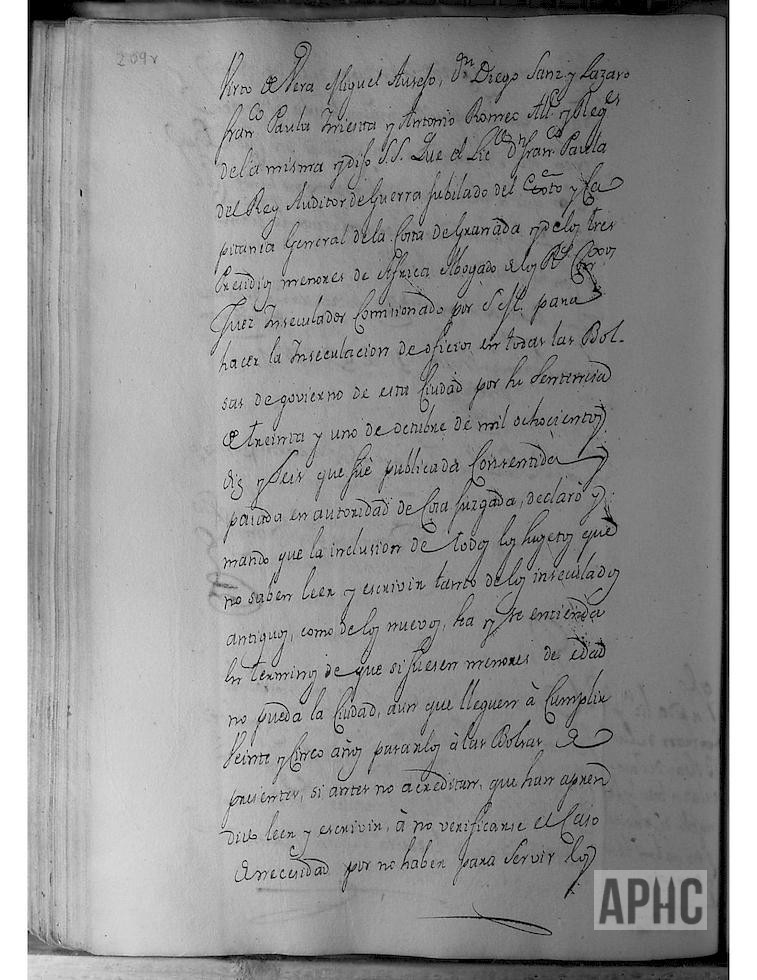 209v
Virto de Vera Miguel Ausejo, Dn Diego Sanz y Lazaro
franco Paula Iniesta y Antonio Romeo Alle y Reges
de la misma y dijo S.S. Que el Licdo Dn franco Paula
del Rey Auditor de Guerra Jubilado del Exto y Ca
pitania General de la Costa de Granada y de los tres
Presidios menores de Africa Abogado de los Rs
Juez Inseculador Comisionado por S.M. para
hacer la Inseculacion de oficios en todas las Bol-
sas de govierno de esta Ciudad por su Sentencia
de treinta y uno de octubre de mil ochocientos
diez y seis que fuè publicada Consentida y
pasada en autoridad de Cosa Juzgada, declaró y
mando que la inclusion de todos los sugetos que
no saben leer y escrivir tanto de los inseculados
antiguos, como de los nuevos, ha y se entienda
en terminos de que si fuesen menores de edad
no pueda la Ciudad, aun que lleguen à Cumplir
Veinte y Cinco años pasarlos à las Bolsas de
presentes, si antes no acreditan, que han apren
dido leer y escrivir, à no verificarse el Caso
de necesidad por no haber para Servir los
APHC